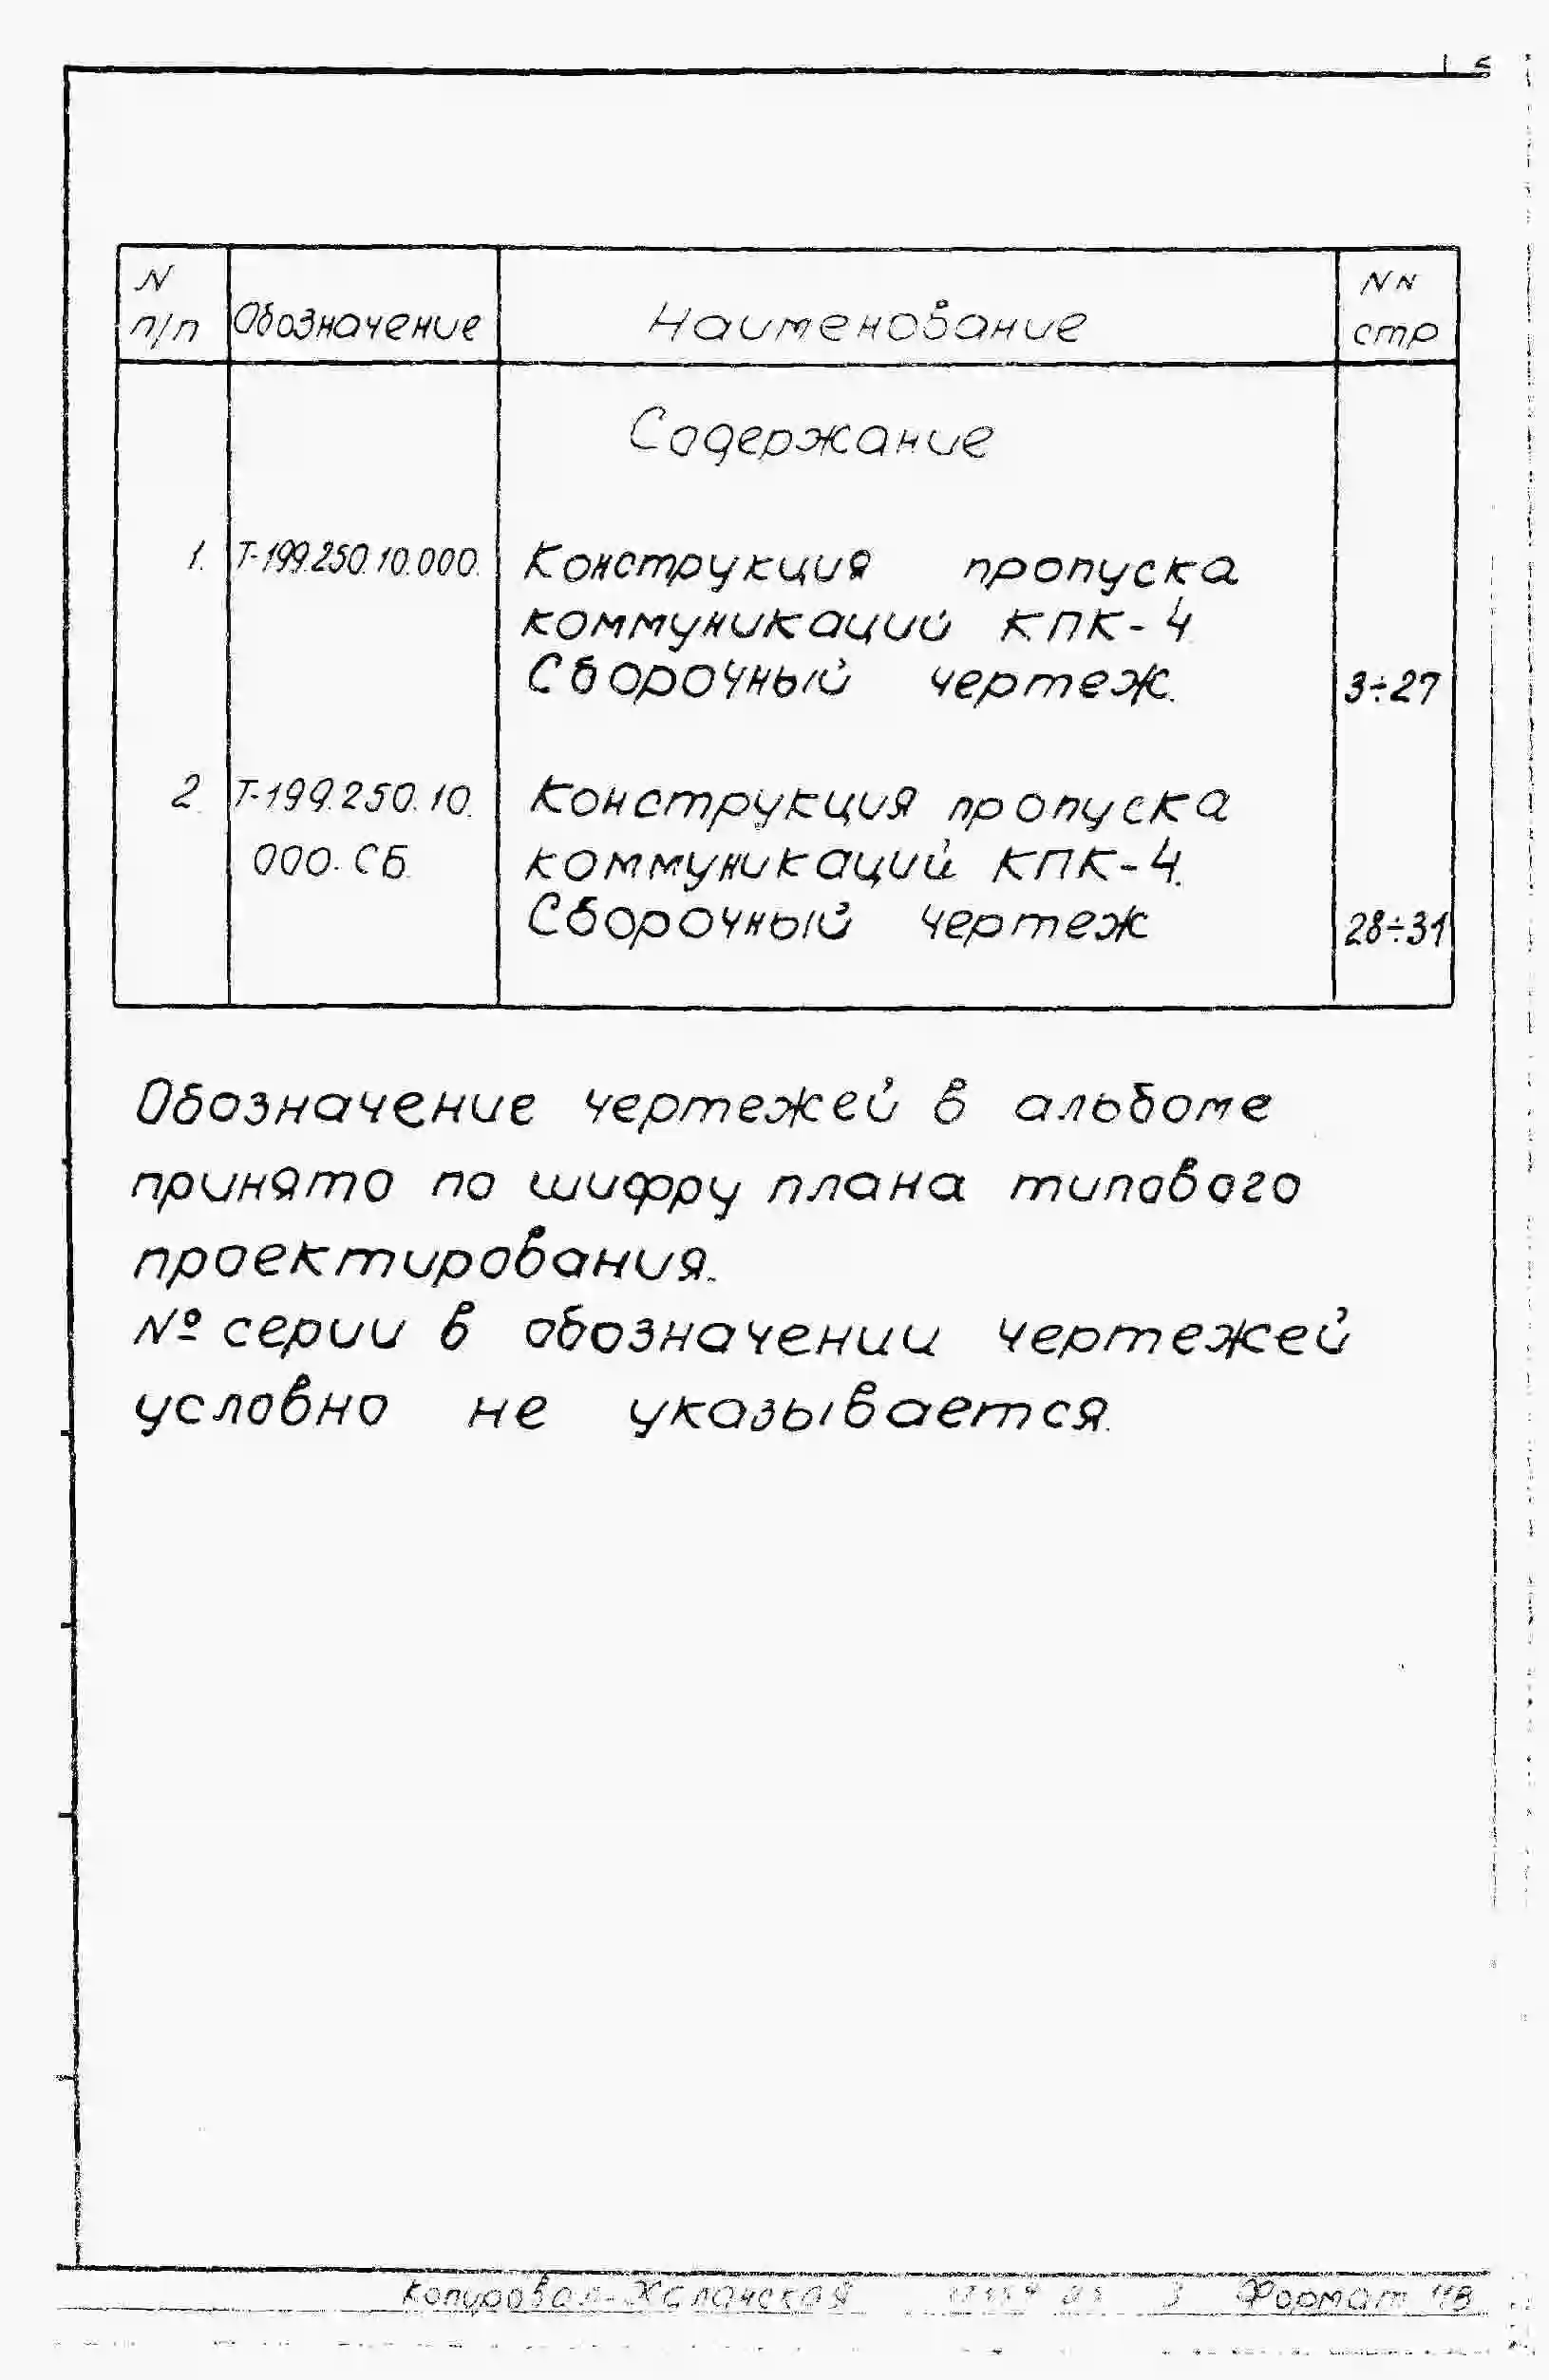 N п/п Обозначение Наименование NN стр
Содержание
1. Т-199.250.10.000. Конструкция пропуска
коммуникаций КПК-4.
Сборочный чертеж. 3÷27
2. Т-199.250.10. Конструкция пропуска
000.СБ. коммуникаций КПК-4.
Сборочный чертеж 28÷31
Обозначение чертежей в альбоме
принято по шифру плана типового
проектирования.
№ серии в обозначении чертежей
условно не указывается.
Копировал- 3 Формат